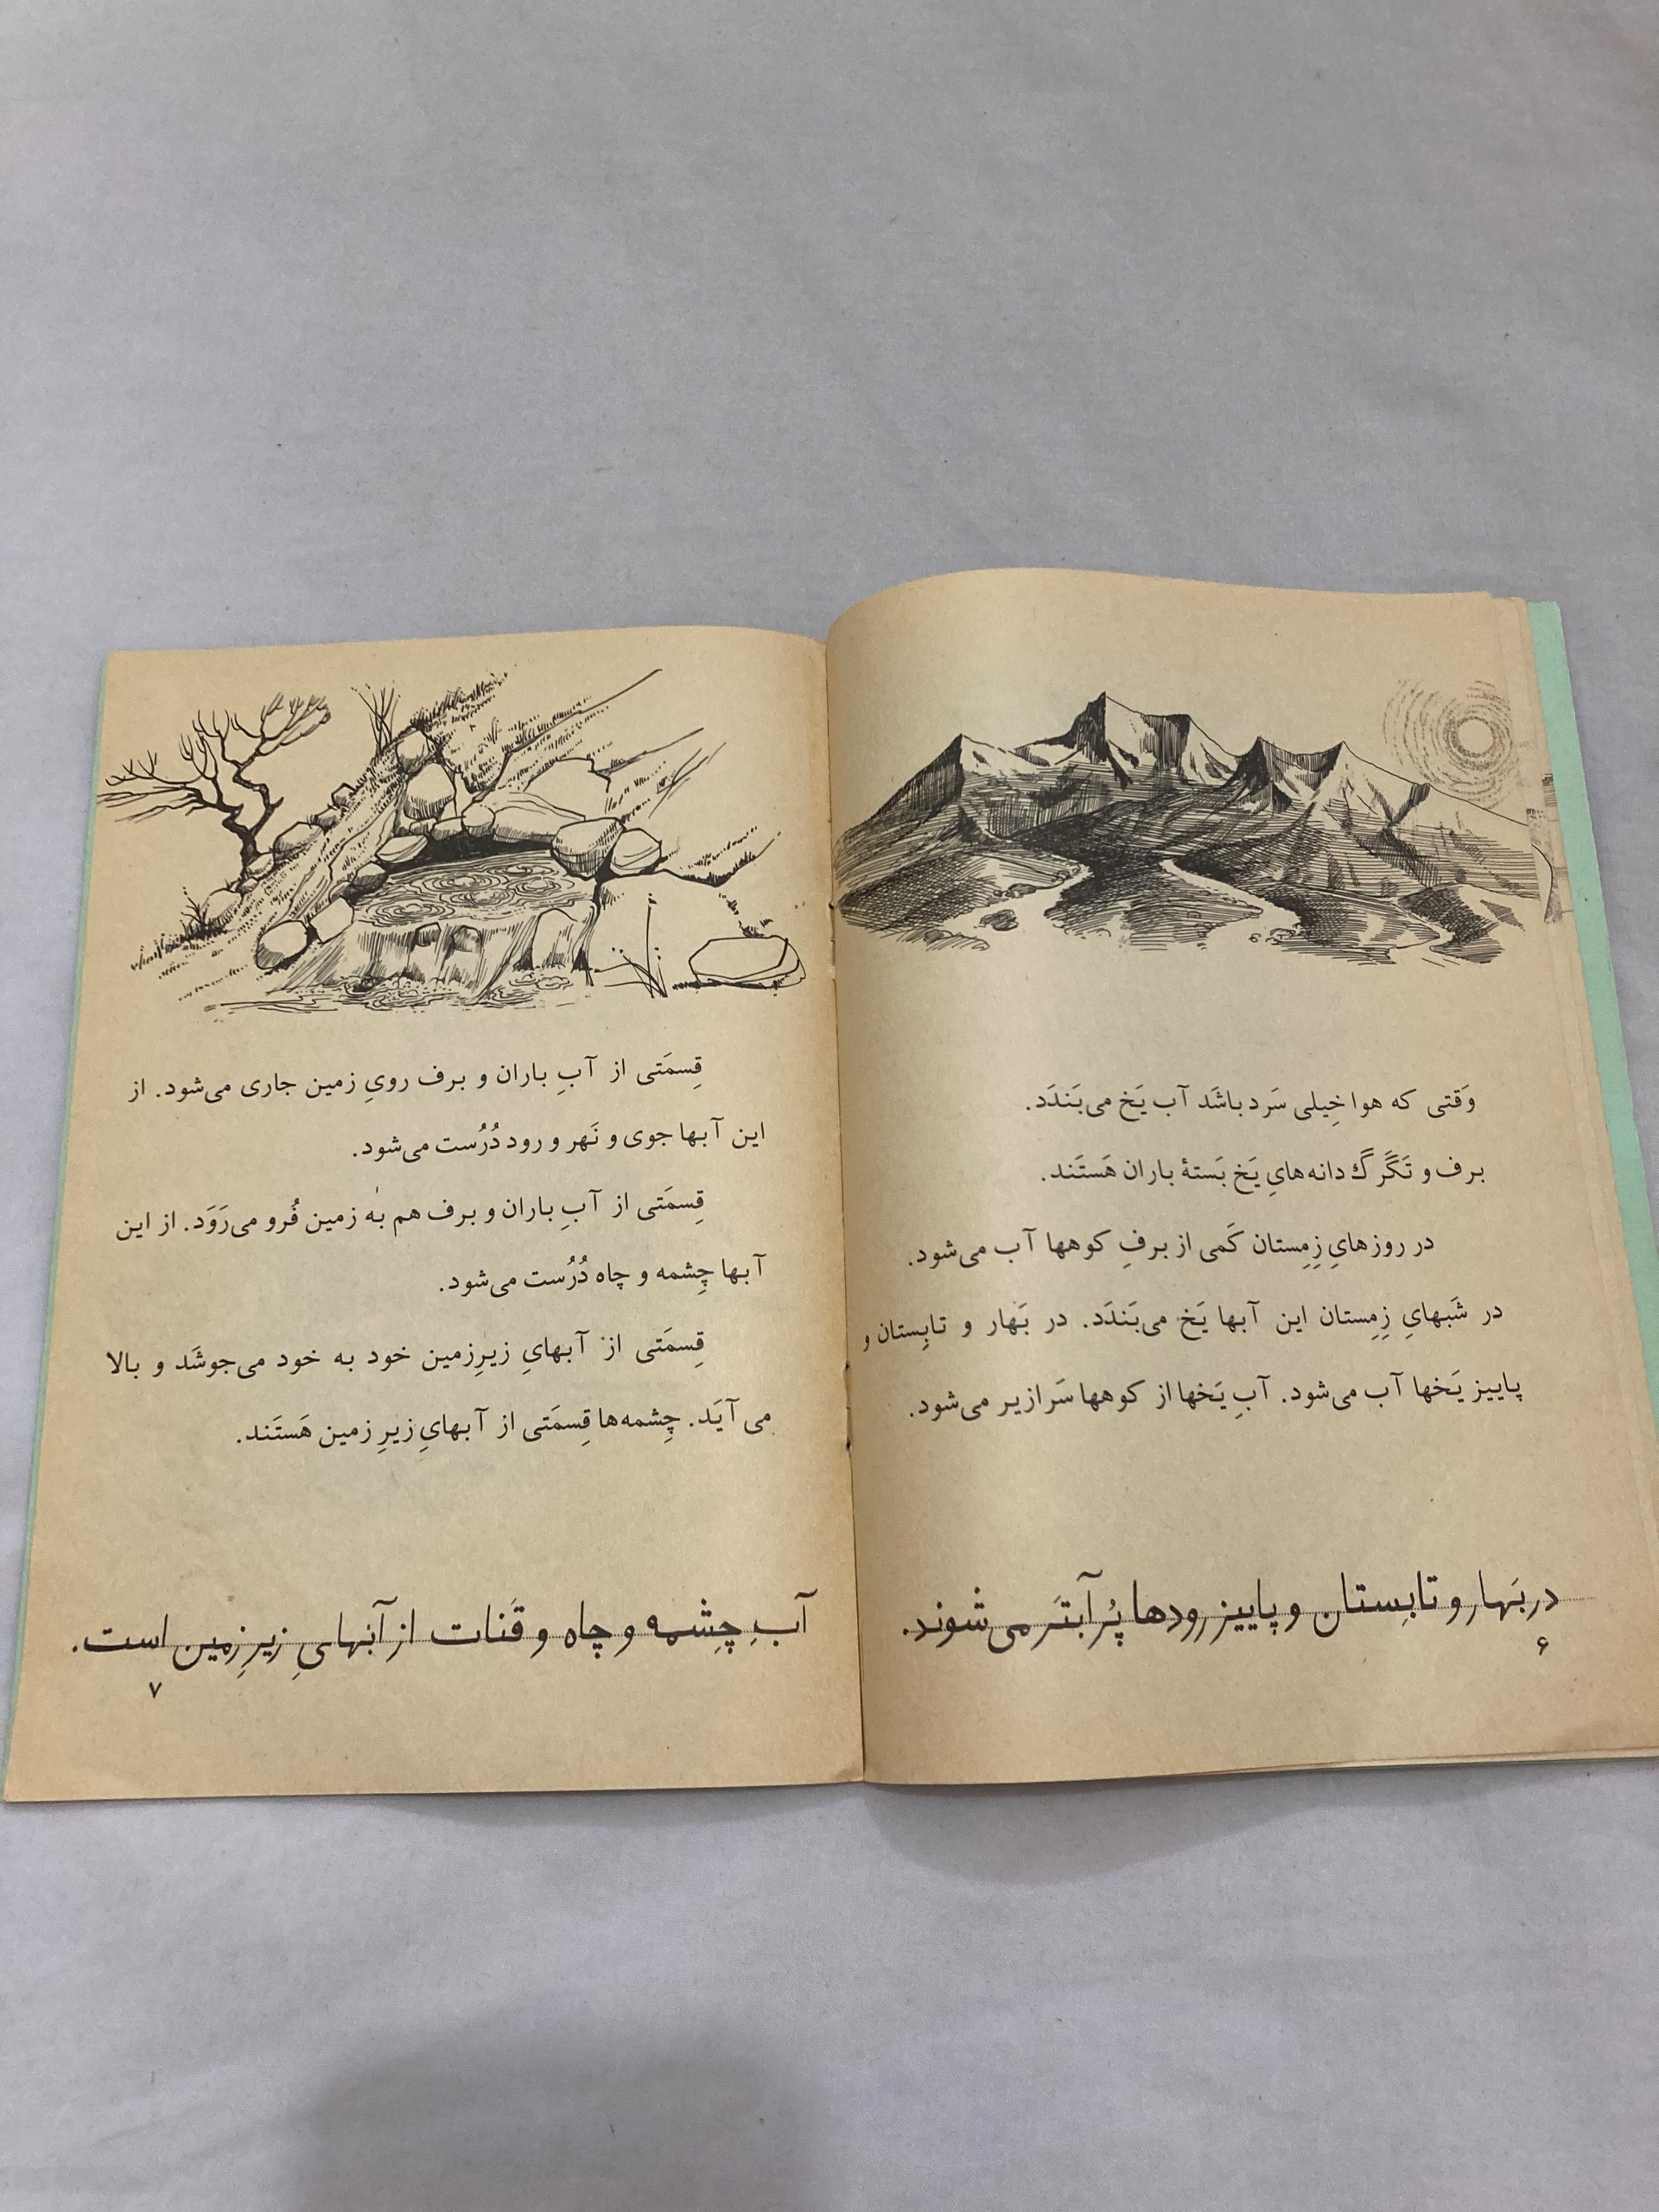 وَقتی که هوا خِیلی سَرد باشَد آب یَخ می‌بَندَد.
برف و تَگَرگ دانه‌هایِ یَخ بَستهٔ باران هَستَند.
در روزهایِ زِمِستان کَمی از برفِ کوهها آب می‌شود.
در شَبهایِ زِمِستان این آبها یَخ می‌بَندَد. در بَهار و تابِستان و
پاییز یَخها آب می‌شود. آبِ یَخها از کوهها سَرازیر می‌شود.
در بَهار و تابِستان و پاییز رودها پُر آبتَر می‌شوند.
۶
قِسمَتی از آبِ باران و برف رویِ زمین جاری می‌شود. از
این آبها جوی و نَهر و رود دُرُست می‌شود.
قِسمَتی از آبِ باران و برف هم به زمین فُرو می‌رَوَد. از این
آبها چِشمه و چاه دُرُست می‌شود.
قِسمَتی از آبهایِ زیرِ زمین خود به خود می‌جوشَد و بالا
می‌آیَد. چِشمه‌ها قِسمَتی از آبهایِ زیرِ زمین هَستَند.
آبِ چِشمه و چاه و قَنات از آبهایِ زیرِ زمین است.
۷